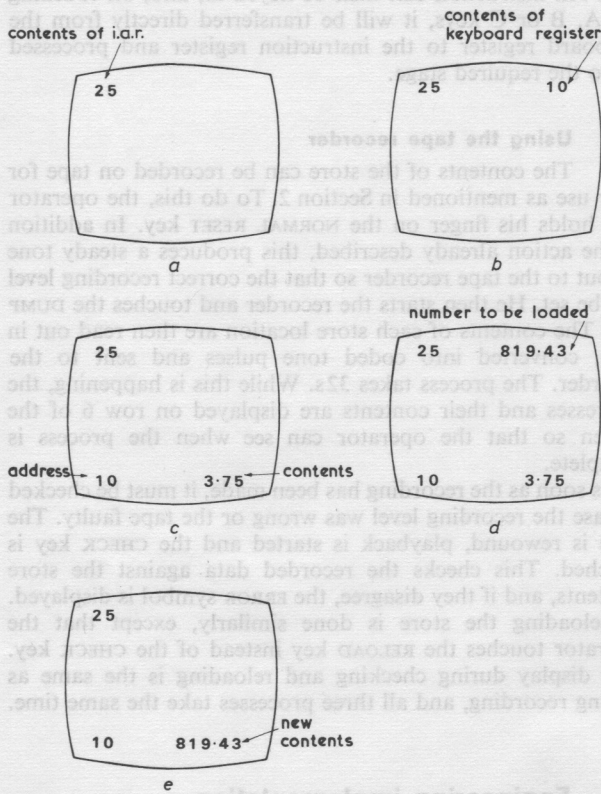 contents of i.a.r.
25
a
contents of
keyboard register
25 10
b
25
address 10 3·75 contents
c
number to be loaded
25 819·43
10 3·75
d
25
10 819·43 new
contents
e